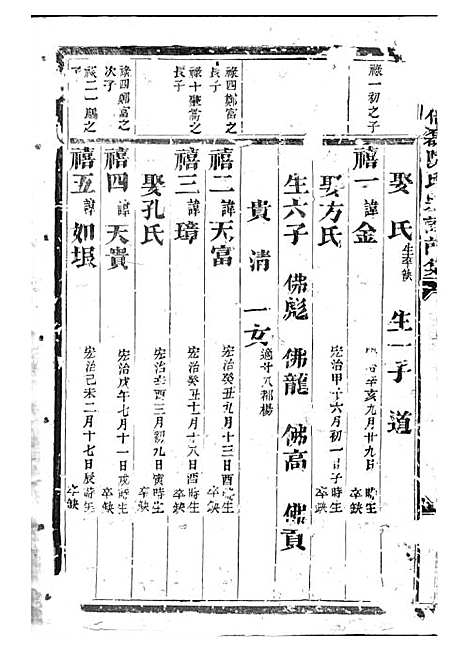 娶氏 生卒缺 生一子 道
祿一初之子
禧一 諱金 辛亥九月廿九日 時生 卒缺
娶方氏 宏治甲子六月初一日子時生 卒缺
生六子 佛彪 佛龍 佛高 佛貢
貴清 一女 適廿八都楊
祿四鄭富之長子
禧二 諱天富 宏治癸丑九月十三日酉時生 卒缺
祿十 之長子
禧三 諱璋 宏治癸丑十一月十八日酉時生 卒缺
娶孔氏 宏治辛酉三月初九日寅時生 卒缺
祿四鄭富之次子
禧四 諱天貴 宏治戊午七月十一日戌時生 卒缺
祿二一 之子
禧五 諱如垠 宏治己未二月十七日辰時生 卒缺